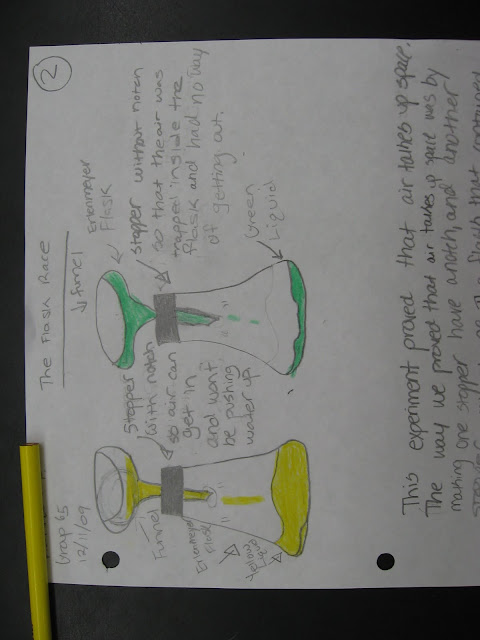 Group 65
12/11/09
The Flask Race
2
↓ funnel
Erlenmeyer
Flask
Funnel
Stopper
with notch
so air can
get in
and wont
be pushing
water up.
Stopper without notch
so that the air was
trapped inside the
flask and had no way
of getting out.
Erlenmeyer
flask
Yellow
Green
Liquid
This experiment proved that air takes up space.
The way we proved that air takes up space was by
making one stopper have a notch, and another
that contained